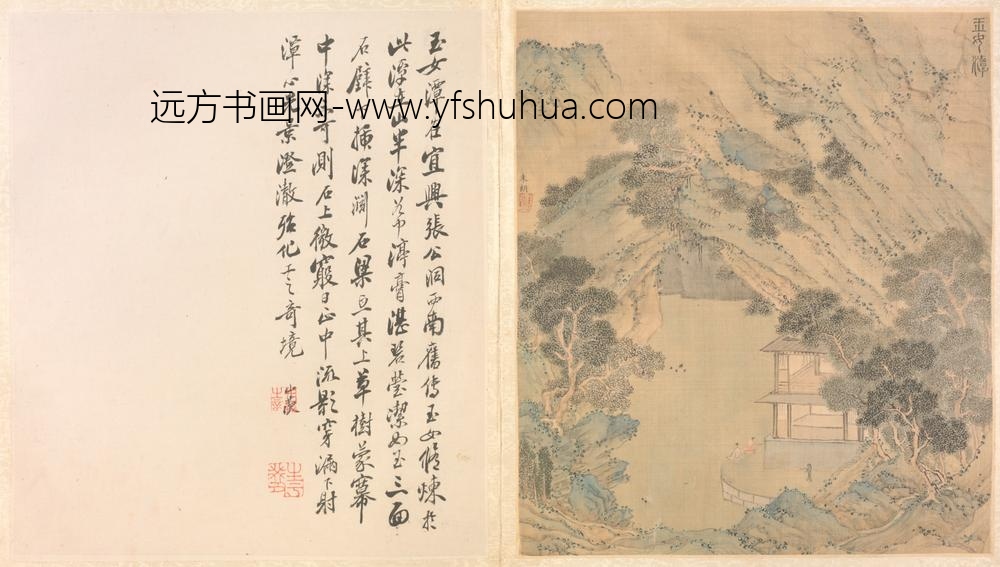 玉女潭
朱朗
玉女潭在宜興張公洞西南舊傳玉女修煉於
此潭在山半深谷中渟膏湛碧瑩潔如玉三面
石壁下插深澗石梁亘其上草樹蒙冪
中深不可測石上微竅日正中流影穿漏下射
潭心光景澄澈奇境
远方书画网-www.yfshuhua.com